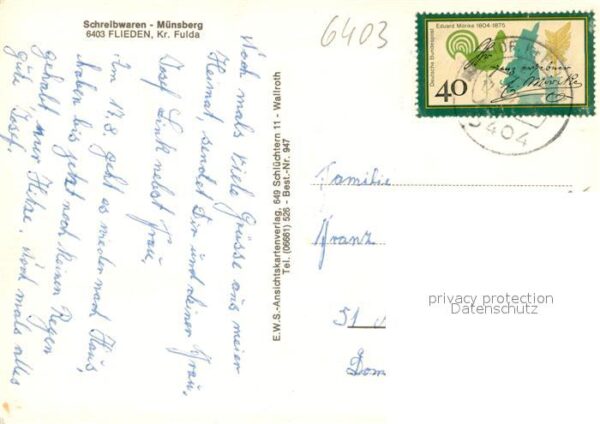 Schreibwaren - Münsberg
6403 FLIEDEN, Kr. Fulda
6403
Noch mals viele Grüsse aus meier
Heimat sendet Dir und deiner Frau,
Josef Link nebst Frau,
Am 17.8. geht es wieder nach Haus,
Haben bis jetzt noch keinen Regen
gehabt nur Hitze. Noch mals alles
Gute Josef.
E.W.S.-Ansichtskartenverlag, 649 Schlüchtern 11 - Wallroth
Tel. (06661) 526 - Best.-Nr. 947
Deutsche Bundespost
Eduard Mörike 1804-1875
40
E. Mörike
6404
Familie
Franz
51
privacy protection
Datenschutz